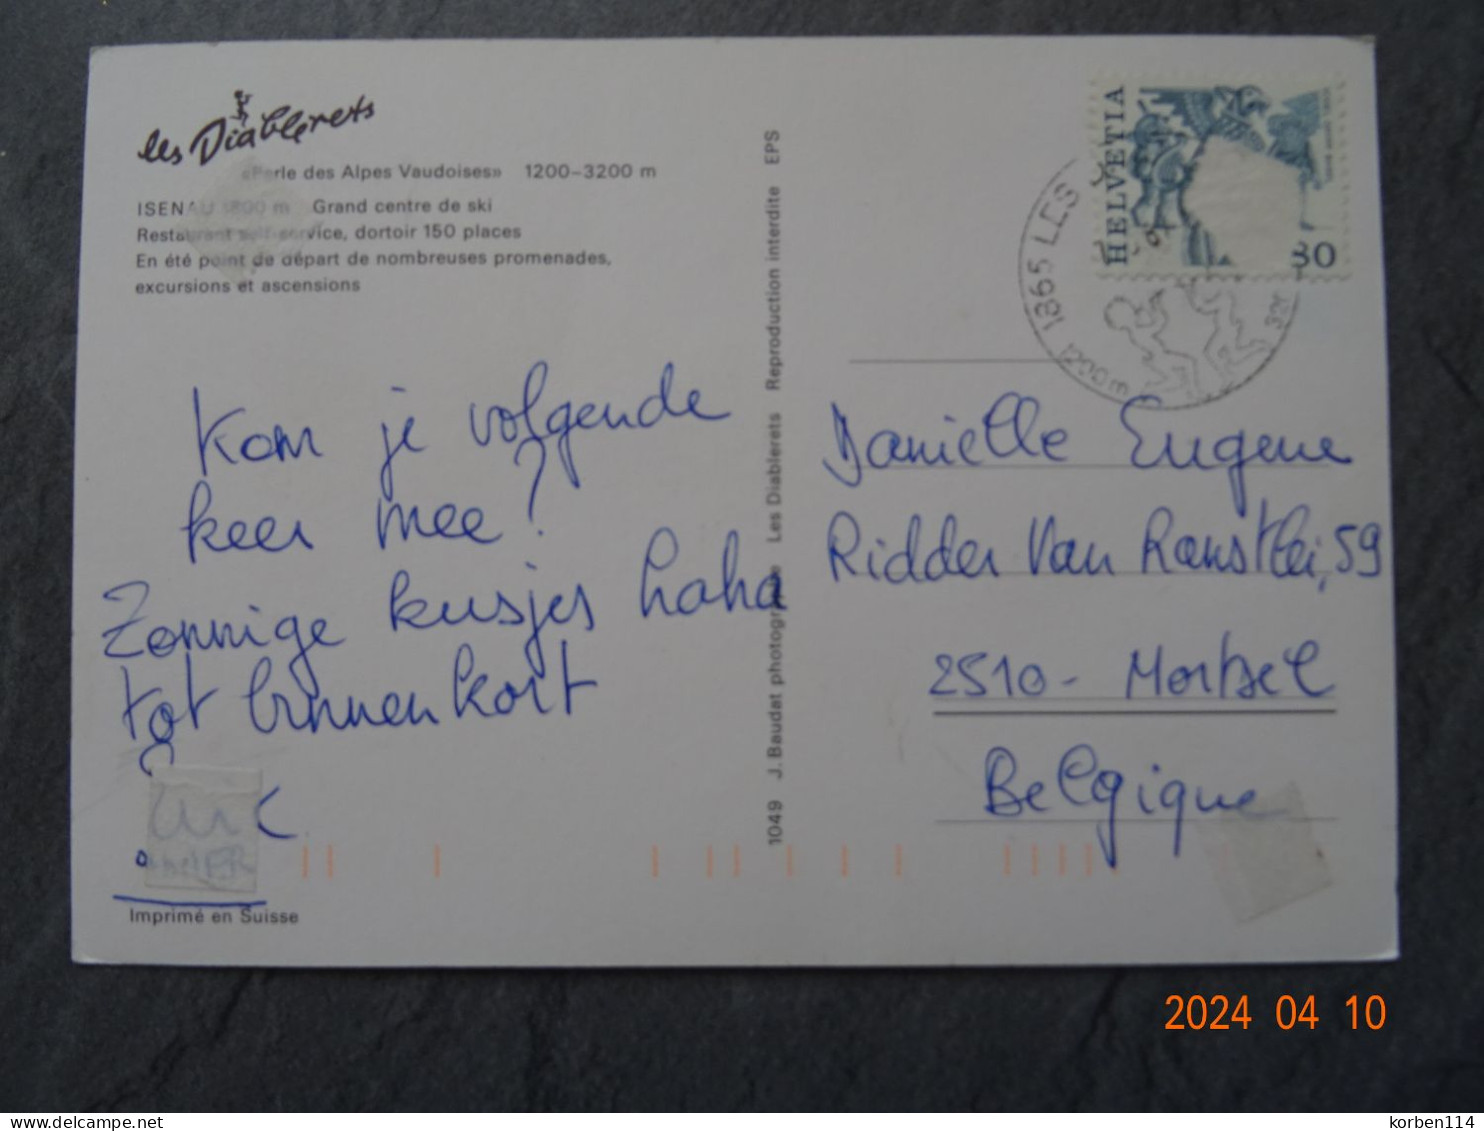 les Diablerets
«Perle des Alpes Vaudoises» 1200–3200 m
ISENAU 1800 m Grand centre de ski
Restaurant self-service, dortoir 150 places
En été point de départ de nombreuses promenades,
excursions et ascensions
Kom je volgende
keer mee?
Zonnige kusjes haha
tot binnenkort
Imprimé en Suisse
1049 J. Baudat photographe Les Diablerets Reproduction interdite EPS
HELVETIA
80
1865 LES
1200 m
Danielle Eugene
Ridder Van Ranstlei, 59
2510 - Mortsel
Belgique
2024 04 10
korben114